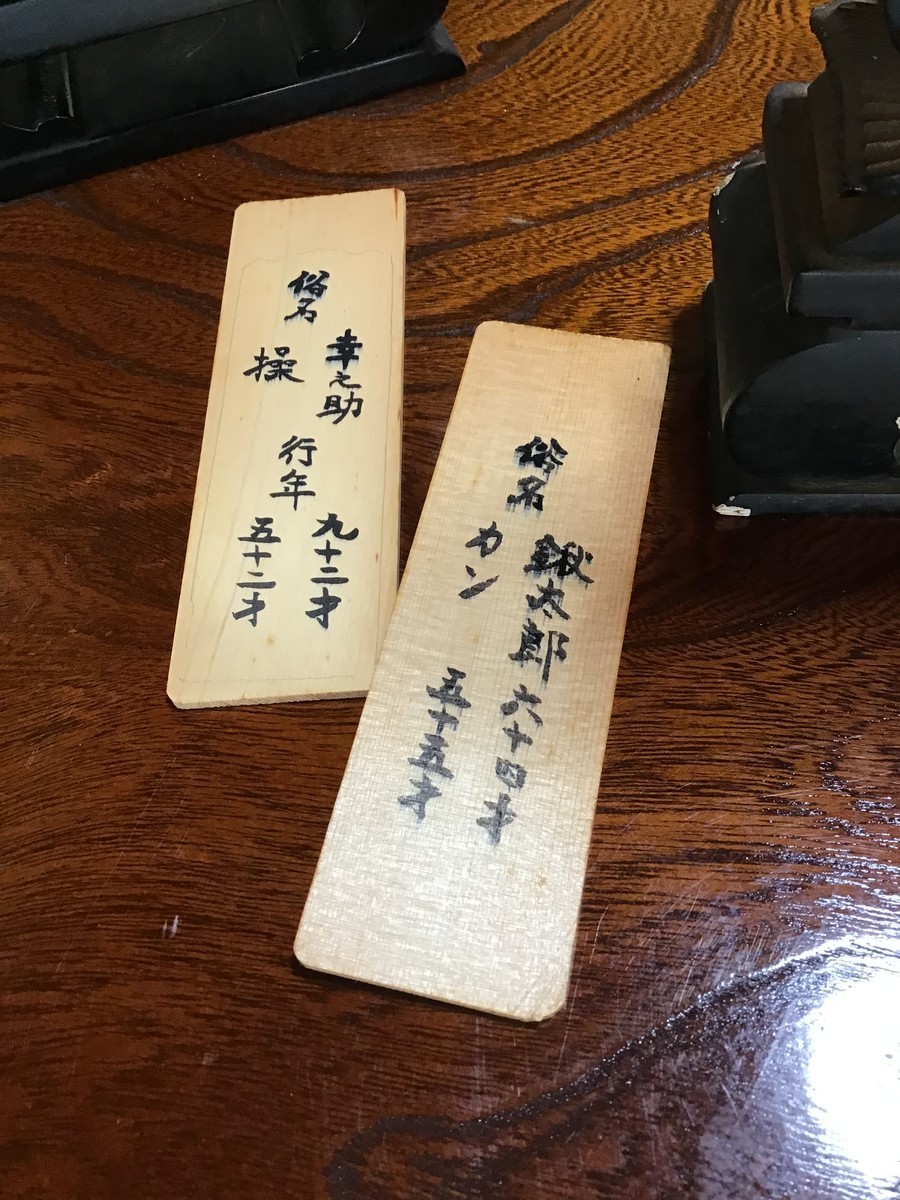 俗名
幸之助
操
行年
九十二才
五十二才
俗名
鍬太郎 六十四才
カン 五十五才